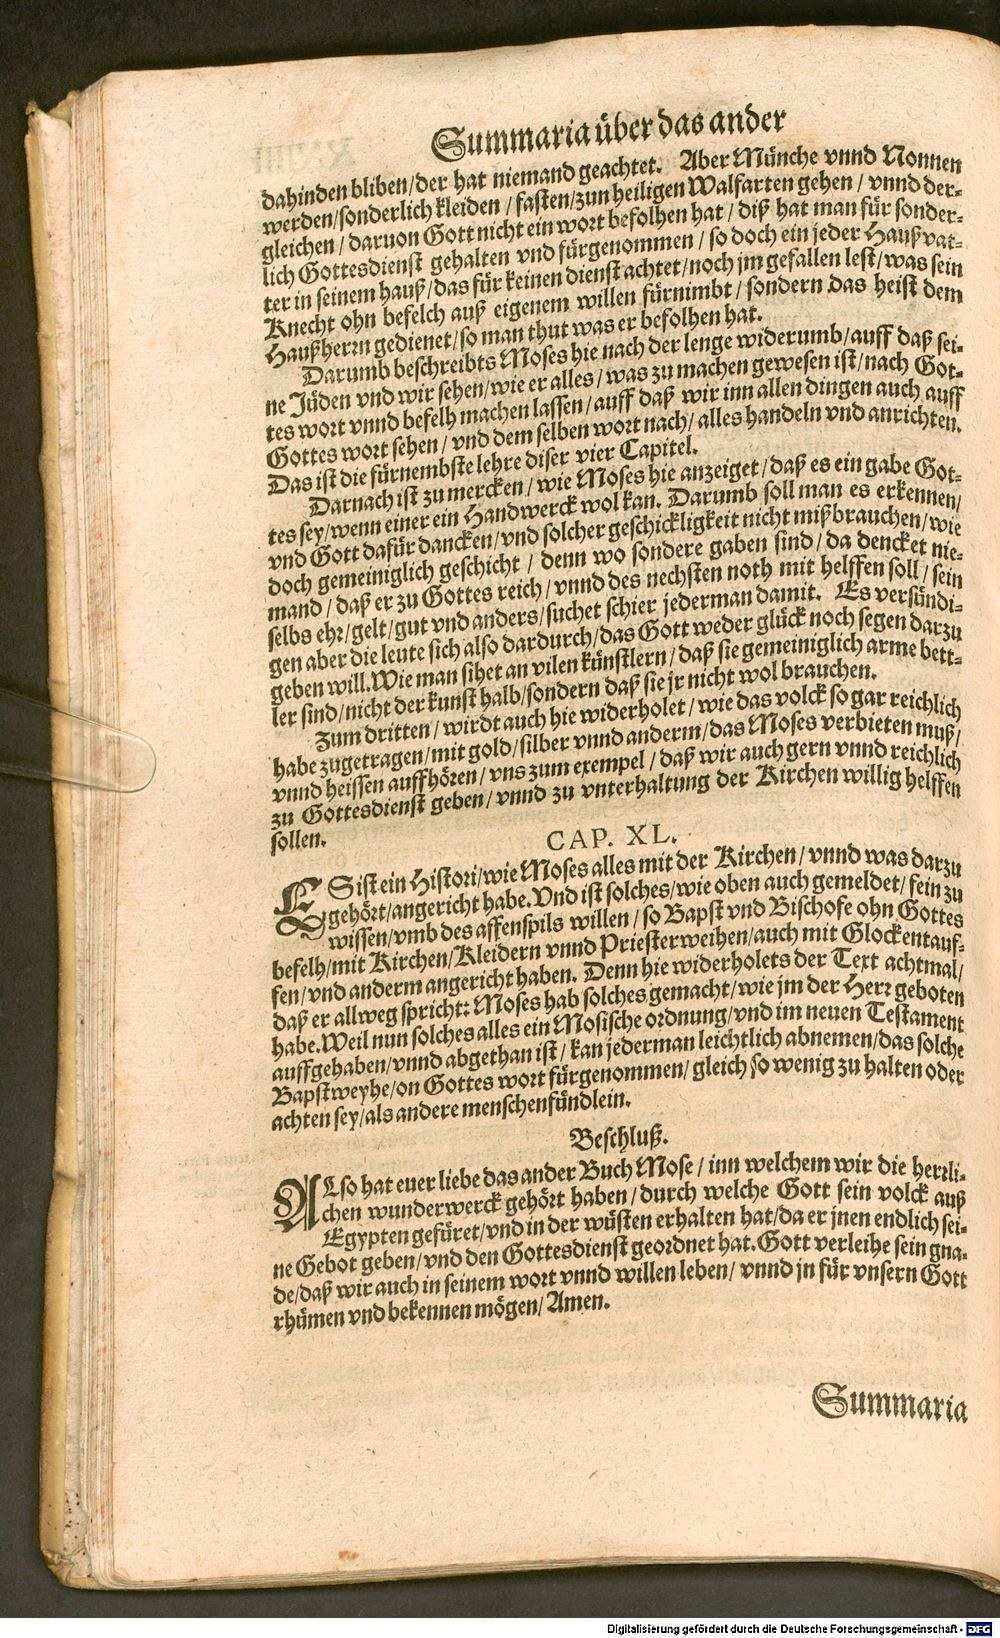 Summaria über das ander
dahinden bliben/der hat niemand geachtet. Aber Münche vnnd Nonnen
werden/sonderlich kleiden / fasten/zun heiligen Walfarten gehen / vnnd der-
gleichen / daruon Gott nicht ein wort befolhen hat / diß hat man für sonder-
lich Gottesdienst gehalten vnd fürgenommen / so doch ein jeder Haußvat-
ter in seinem hauß/das für keinen dienst achtet/noch jm gefallen lest/was sein
Knecht ohn befelch auß eigenem willen fürnimbt / sondern das heist dem
Haußherrn gedienet/so man thut was er befolhen hat.
Darumb beschreibts Moses hie nach der lenge widerumb/auff daß sei-
ne Jüden vnd wir sehen/wie er alles/was zu machen gewesen ist/nach Got-
tes wort vnnd befelh machen lassen/auff daß wir inn allen dingen auch auff
Gottes wort sehen / vnd dem selben wort nach/ alles handeln vnd anrichten.
Das ist die fürnembste lehre diser vier Capitel.
Darnach ist zu mercken / wie Moses hie anzeiget / daß es ein gabe Got-
tes sey/wenn einer ein Handwerck wol kan. Darumb soll man es erkennen/
vnd Gott dafür dancken/vnd solcher geschickligkeit nicht mißbrauchen/wie
doch gemeiniglich geschicht / denn wo sondere gaben sind / da dencket nie-
mand / daß er zu Gottes reich / vnnd des nechsten noth mit helffen soll / sein
selbs ehr/gelt/gut vnd anders/suchet schier jederman damit. Es versündi-
gen aber die leute sich also dardurch/das Gott weder glück noch segen darzu
geben will. Wie man sihet an vilen künstlern/daß sie gemeiniglich arme bett-
ler sind/nicht der kunst halb/sondern daß sie jr nicht wol brauchen.
Zum dritten / wirdt auch hie widerholet / wie das volck so gar reichlich
habe zugetragen/mit gold/silber vnnd anderm/das Moses verbieten muß/
vnnd heissen auffhören/ vns zum exempel / daß wir auch gern vnnd reichlich
zu Gottesdienst geben/vnnd zu vnterhaltung der Kirchen willig helffen
sollen.
CAP. XL.
ES ist ein Histori/wie Moses alles mit der Kirchen/ vnnd was darzu
gehört/angericht habe. Vnd ist solches/wie oben auch gemeldet/fein zu
wissen/vmb des affenspils willen / so Bapst vnd Bischofe ohn Gottes
befelh/mit Kirchen/Kleidern vnnd Priesterweihen/auch mit Glockentauf-
fen/vnd anderm angericht haben. Denn hie widerholets der Text achtmal/
daß er allweg spricht: Moses hab solches gemacht/wie jm der Herr geboten
habe. Weil nun solches alles ein Mosische ordnung/vnd im neuen Testament
auffgehaben/vnnd abgethan ist / kan jederman leichtlich abnemen/das solche
Bapstweyhe/on Gottes wort fürgenommen/ gleich so wenig zu halten oder
achten sey/als andere menschenfündlein.
Beschluß.
ALso hat euer liebe das ander Buch Mose / inn welchem wir die herrli-
chen wunderwerck gehört haben/ durch welche Gott sein volck auß
Egypten gefüret/vnd in der wüsten erhalten hat/da er jnen endlich sei-
ne Gebot geben/vnd den Gottesdienst geordnet hat. Gott verleihe sein gna-
de/daß wir auch in seinem wort vnnd willen leben/ vnnd jn für vnsern Gott
rhümen vnd bekennen mögen/ Amen.
Summaria
Digitalisierung gefördert durch die Deutsche Forschungsgemeinschaft - DFG